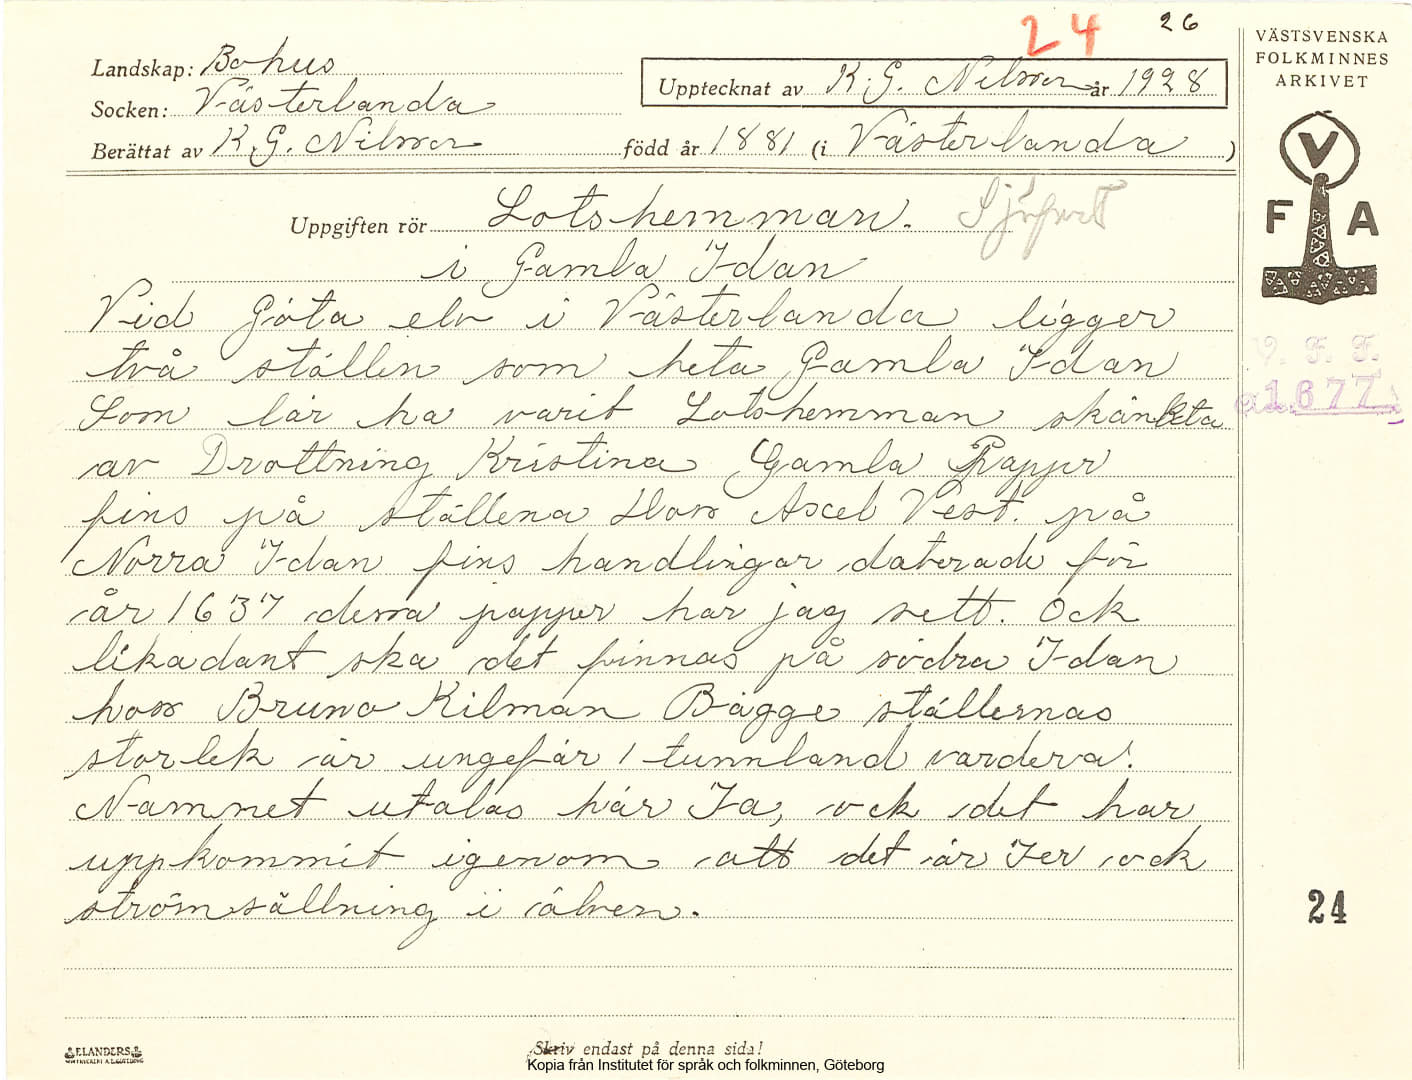 24 26
Landskap: Bohus
Socken: Västerlanda
Upptecknat av K. G. Nilsson år 1928
Berättat av K. G. Nilsson född år 1881 (i Västerlanda )
Uppgiften rör Lotshemman. Sjöfart
i Gamla Idan
Vid Göta elv i Västerlanda ligger
två ställen som heta Gamla Idan
Som lär ha varit Lotshemman skänkta
av Drottning Kristina Gamla Papper
fins på ställena Hos Axel Vest. på
Norra Idan fins handlingar daterade för
år 1637 dessa papper har jag sett. Ock
likadant ska det finnas på södra Idan
hos Bruno Kilman Bägge ställernas
storlek är ungefär 1 tunnland vardera!
Namnet utalas här Ia, ock det har
uppkommit igenom att det är Ier ock
strömsällning i älven.
VÄSTSVENSKA
FOLKMINNES
ARKIVET
V
F A
V. F. F.
1677
24
ELANDERS
Skriv endast på denna sida!
Kopia från Institutet för språk och folkminnen, Göteborg